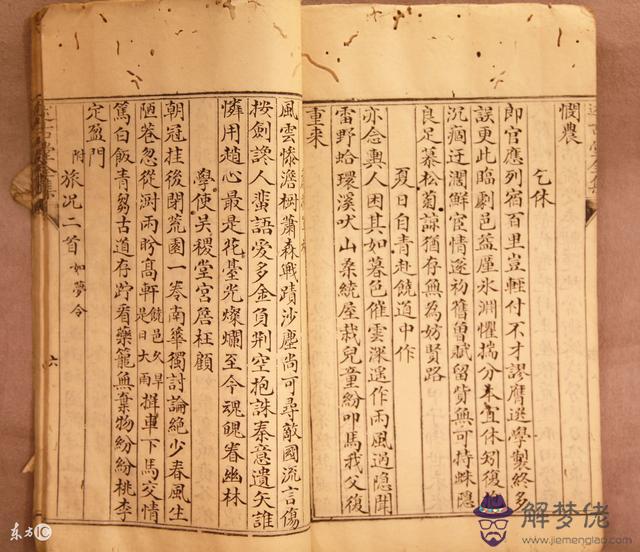 憫農
乞休
即官應列宿百里豈輕付不才謬膺選學製終多
誤更此臨劇邑益厪氷淵懼揣分本宜休矧復抱
沉痼迂濶鮮宦情遂初舊曾賦留貲無可持蛛隱
良足慕松菊諒猶存無為妨賢路
夏日自青赴饒道中作
亦念輿人困其如暮色催雲深遙作雨風過隱聞
雷野蛤環溪吠山桑繞屋栽兒童紛叩馬我父復
重来
風雲慘澹樹蕭森戰蹟沙塵尚可尋敵國流言傷
按劍讒人蜚語愛多金負荆空抱誅秦意遺矢誰
憐用趙心最是花臺光燦爛至今魂魄眷幽林
學使吳稷堂宮詹枉顧
朝冠挂後閉荒園一卷南華獨討論絶少春風生
陋巷忽從澍雨盻高軒饒邑久旱是日大雨車下馬交情
篤白飯青芻古道存佇看藥籠無棄物紛紛桃李
定盈門
附旅况二首如夢令
六
东方IC
解梦佬
www.jiemenglao.com